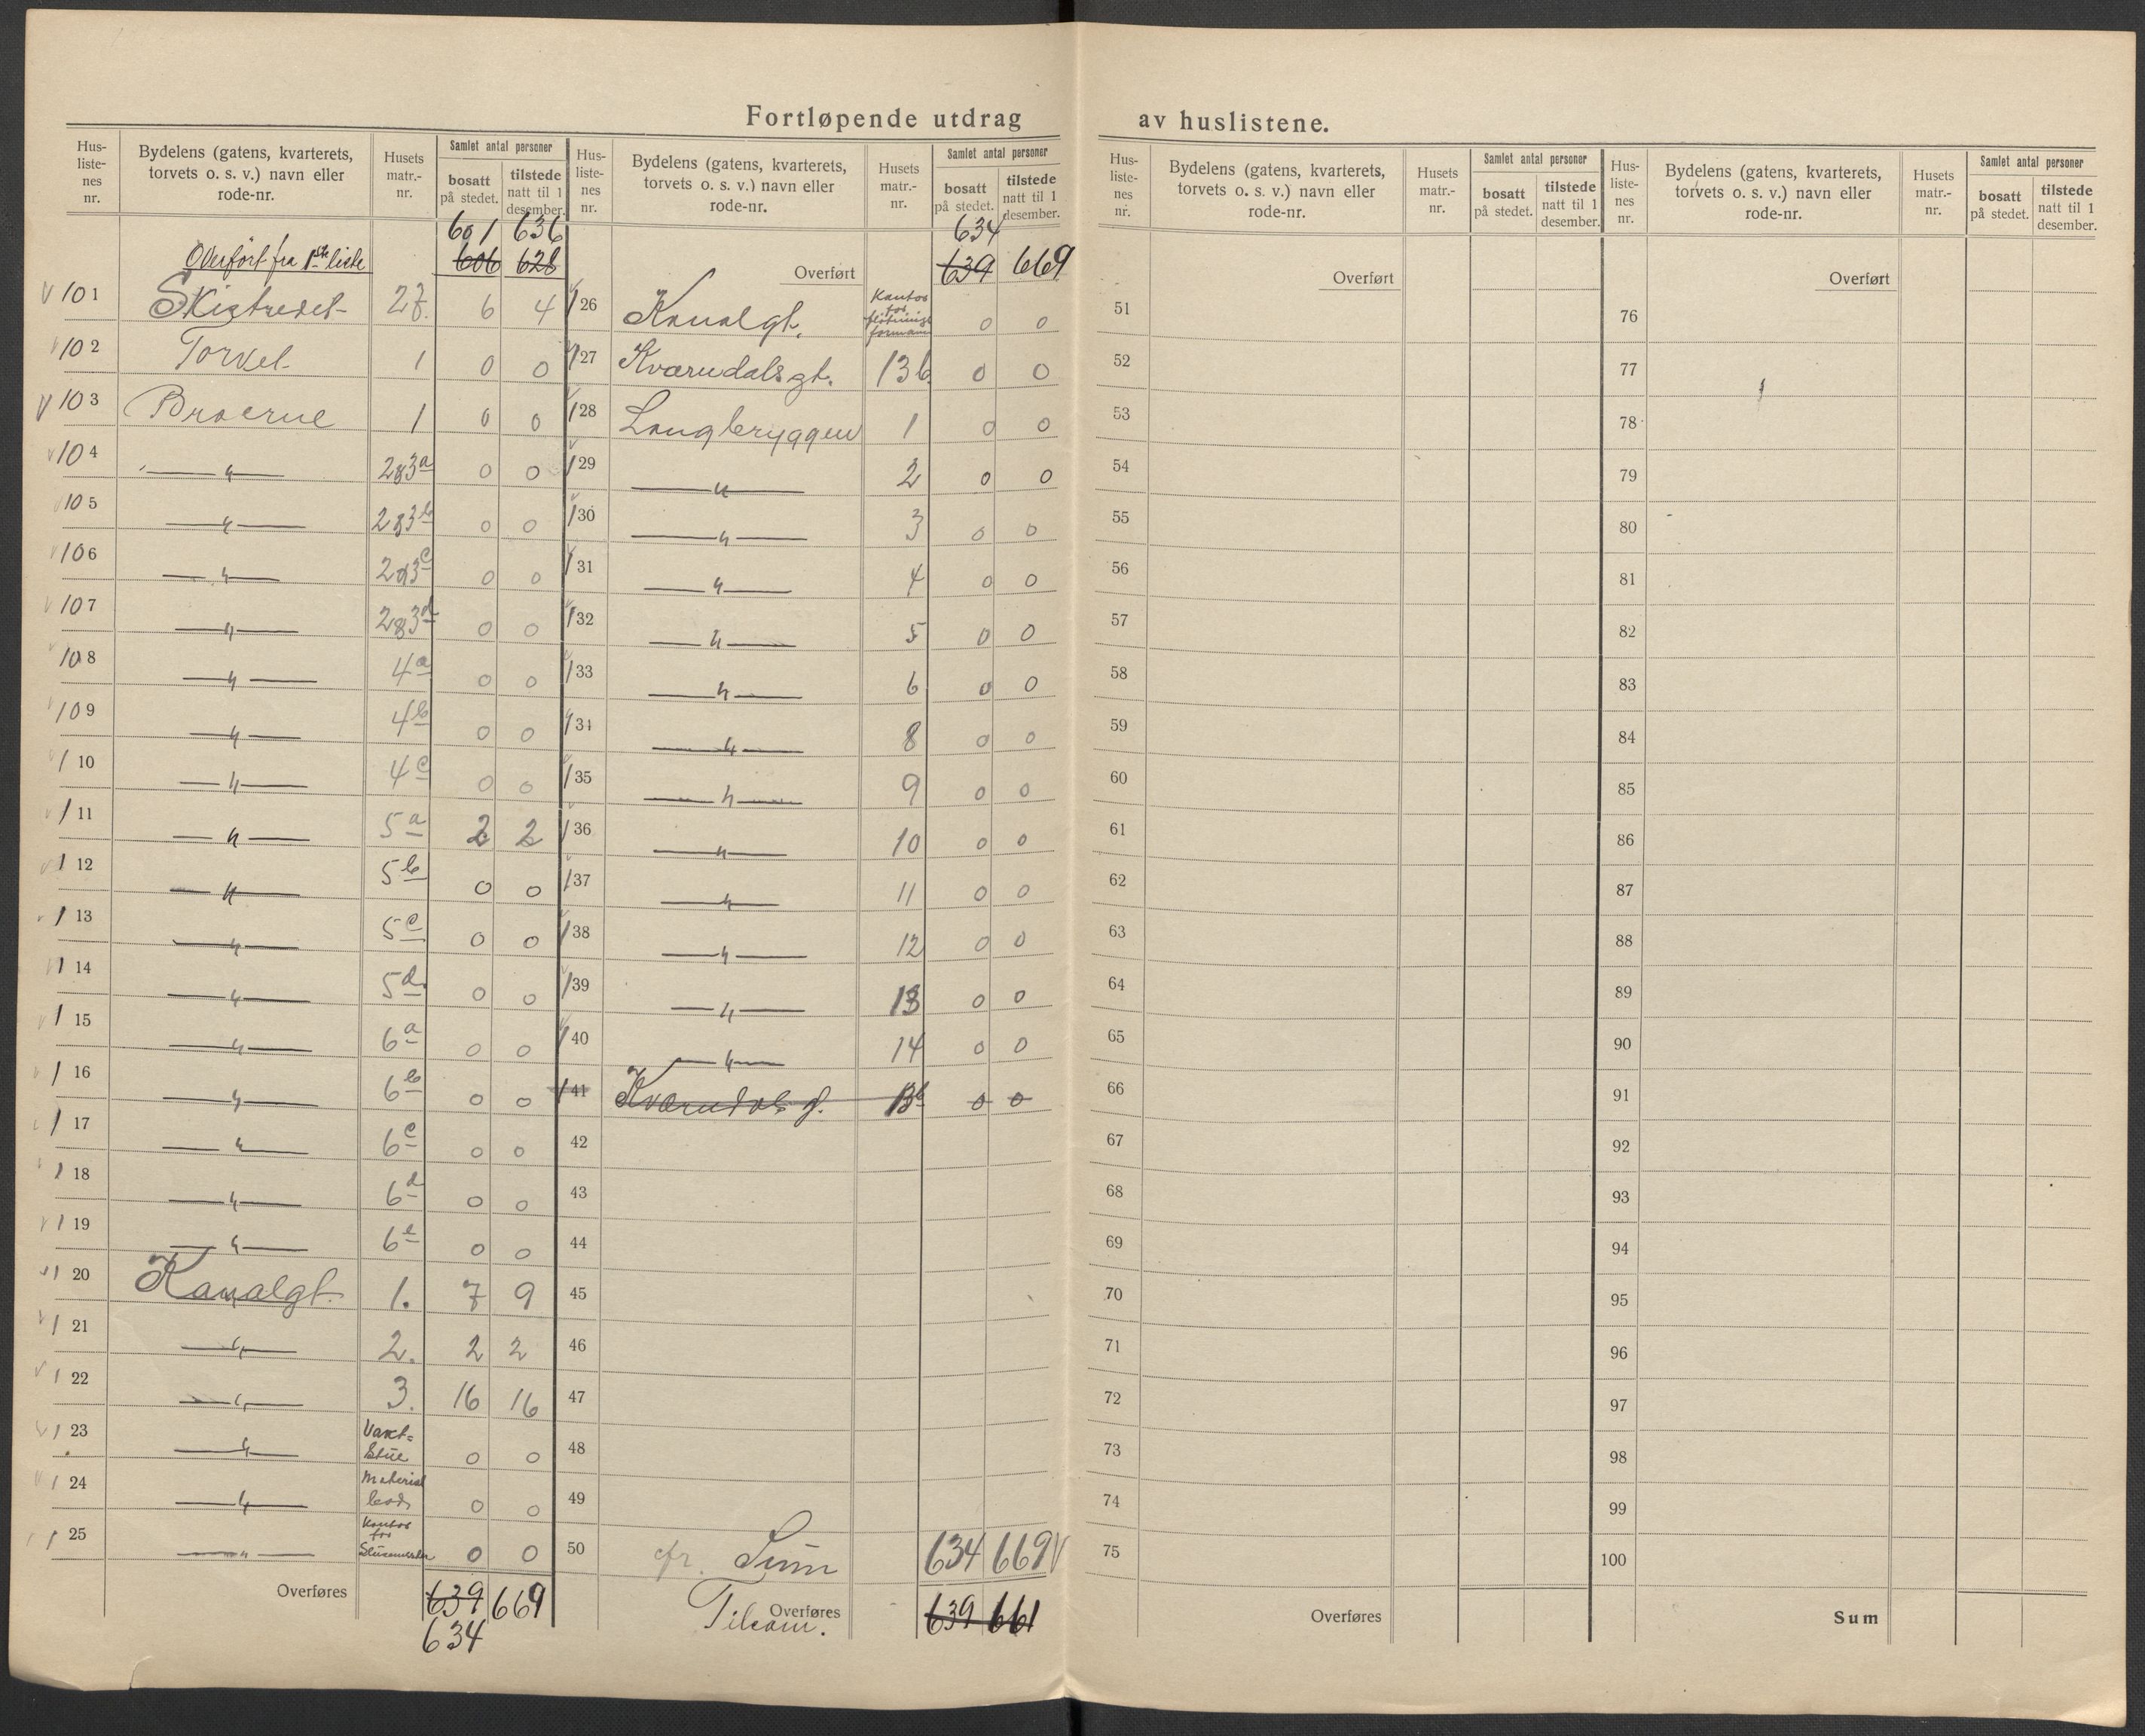 Fortløpende utdrag av huslistene.
Hus- liste- nes nr.
Bydelens (gatens, kvarterets, torvets o. s. v.) navn eller rode-nr.
Husets matr.- nr.
Samlet antal personer
bosatt på stedet.
tilstede natt til 1 desember.
601 636
Overført fra 1ste liste 606 628
101 Skistredet 27. 6 4
102 Torvet 1 0 0
103 Broerne 1 0 0
104 — " — 2&3a 0 0
105 — " — 2&3b 0 0
106 — " — 2&3c 0 0
107 — " — 2&3d 0 0
108 — " — 4a 0 0
109 — " — 4b 0 0
110 — " — 4c 0 0
111 — " — 5a 2 2
112 — " — 5b 0 0
113 — " — 5c 0 0
114 — " — 5d 0 0
115 — " — 6a 0 0
116 — " — 6b 0 0
117 — " — 6c 0 0
118 — " — 6d 0 0
119 — " — 6e 0 0
120 Kanalgt. 1. 7 9
121 — " — 2. 2 2
122 — " — 3. 16 16
123 — " — Vakt= stue 0 0
124 — " — Material bod 0 0
125 — " — Kontor for Slusemester 0 0
Overføres 639 669
634
Hus- liste- nes nr.
Bydelens (gatens, kvarterets, torvets o. s. v.) navn eller rode-nr.
Husets matr.- nr.
Samlet antal personer
bosatt på stedet.
tilstede natt til 1 desember.
634
Overført 639 669
126 Kanalgt. Kontor for fløtnings formann 0 0
127 Kværndalsgt. 13b. 0 0
128 Langbryggen 1 0 0
129 — " — 2 0 0
130 — " — 3 0 0
131 — " — 4 0 0
132 — " — 5 0 0
133 — " — 6 0 0
134 — " — 8 0 0
135 — " — 9 0 0
136 — " — 10 0 0
137 — " — 11 0 0
138 — " — 12 0 0
139 — " — 13 0 0
140 — " — 14 0 0
141 Kværndalsg. 13b 0 0
42
43
44
45
46
47
48
49
50 cfr. Sum 634 669 V
Overføres
Tilsam. 639 661
Hus- liste- nes nr.
Bydelens (gatens, kvarterets, torvets o. s. v.) navn eller rode-nr.
Husets matr.- nr.
Samlet antal personer
bosatt på stedet.
tilstede natt til 1 desember.
Overført
51
52
53
54
55
56
57
58
59
60
61
62
63
64
65
66
67
68
69
70
71
72
73
74
75
Overføres
Hus- liste- nes nr.
Bydelens (gatens, kvarterets, torvets o. s. v.) navn eller rode-nr.
Husets matr.- nr.
Samlet antal personer
bosatt på stedet.
tilstede natt til 1 desember.
Overført
76
77
78
79
80
81
82
83
84
85
86
87
88
89
90
91
92
93
94
95
96
97
98
99
100
Sum